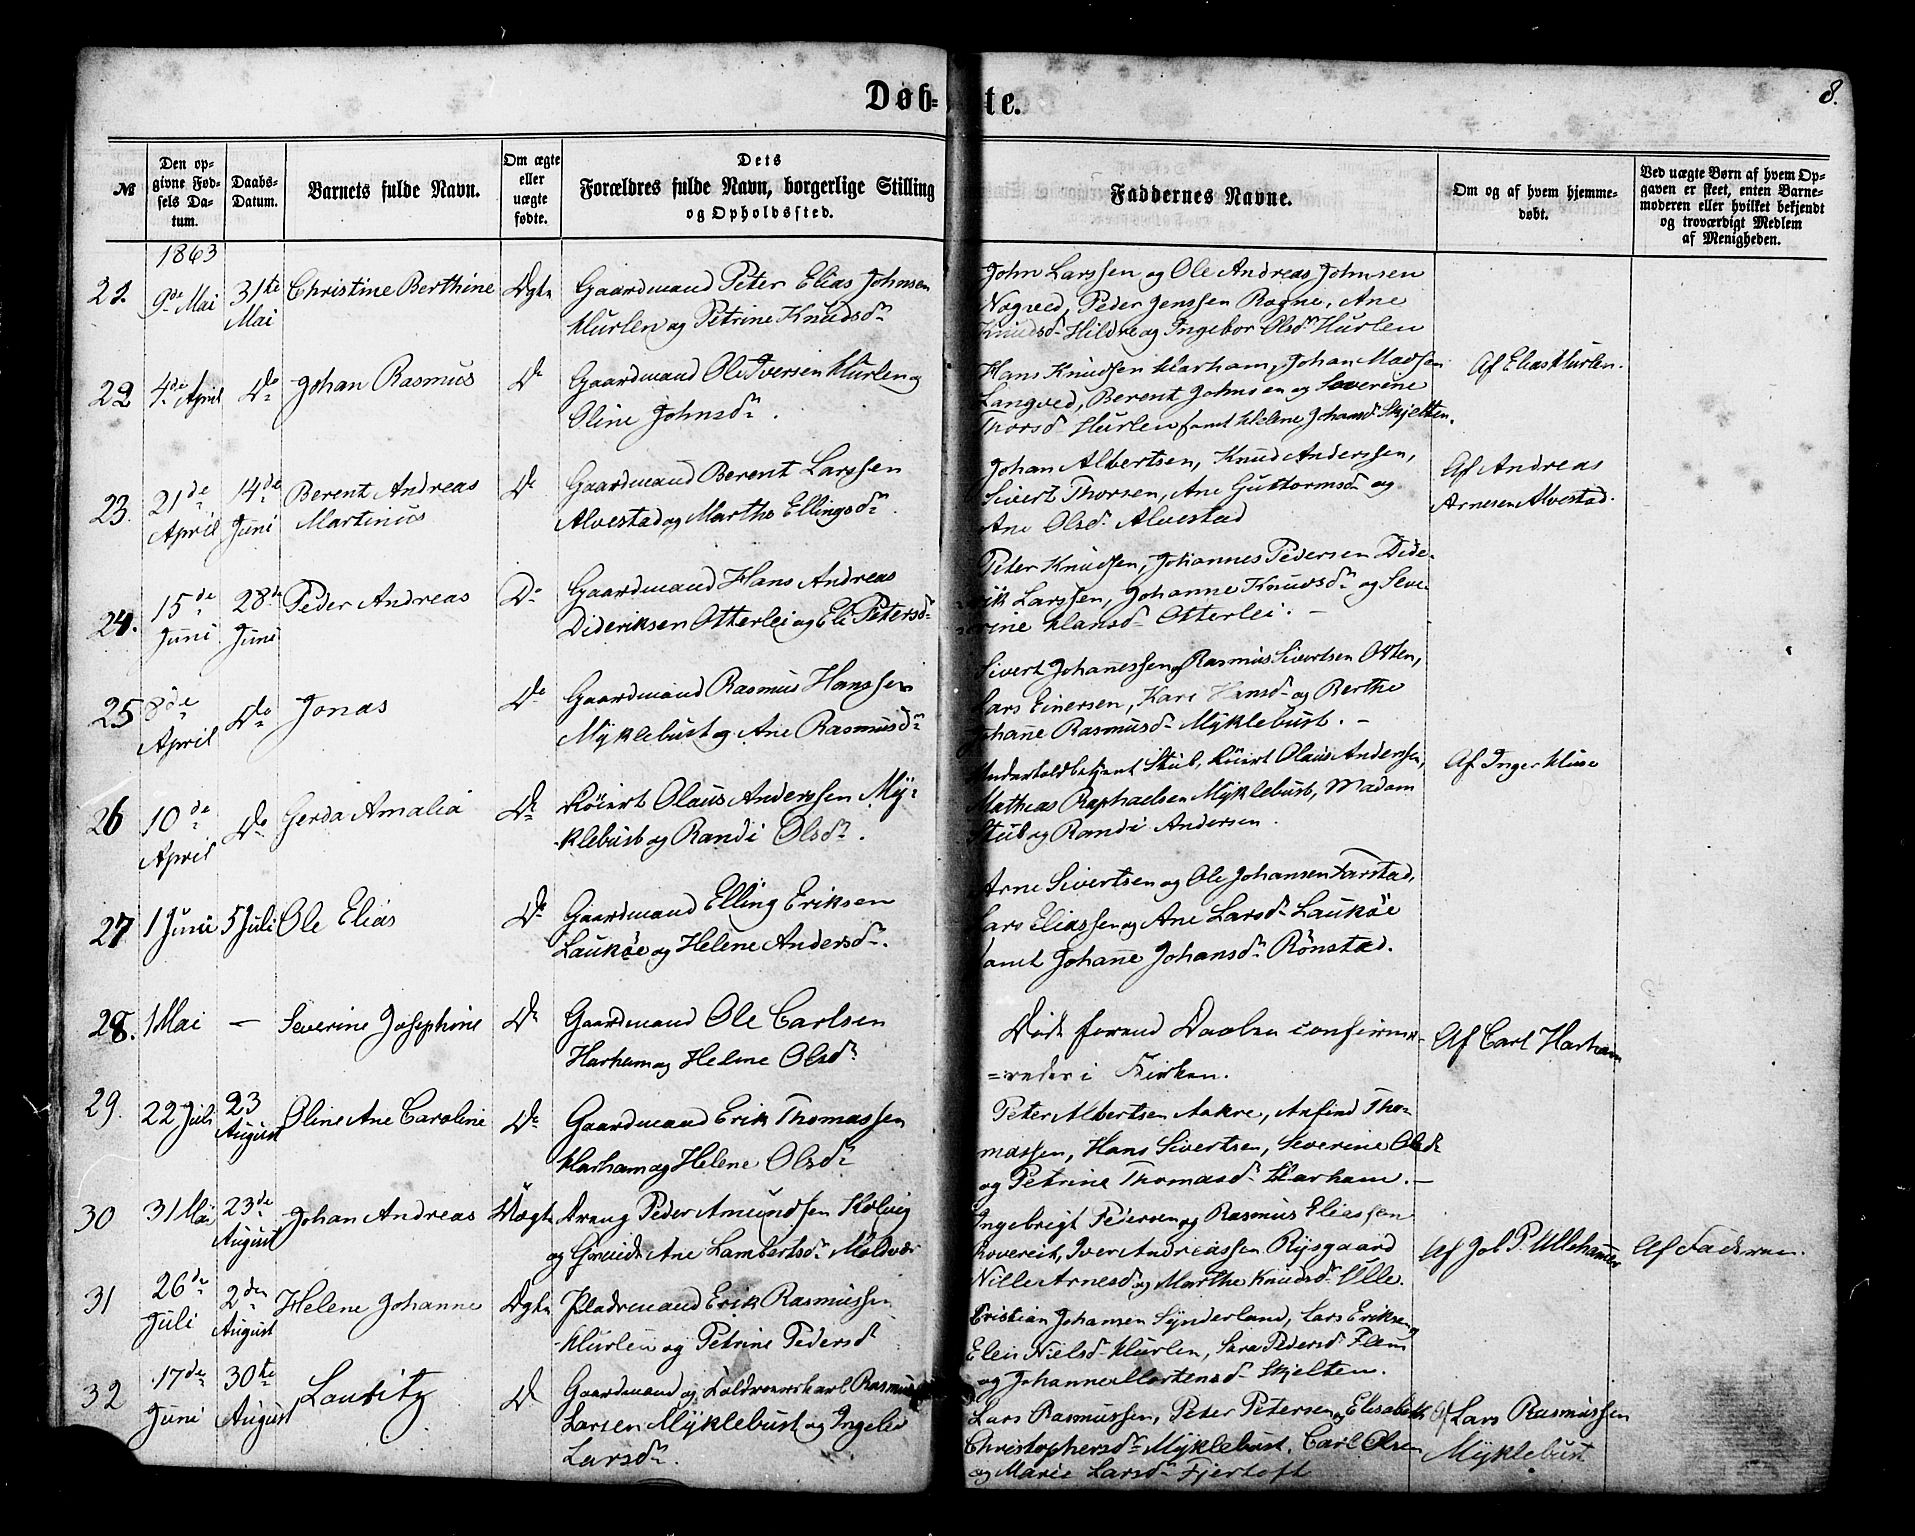 Døb-te.
8.
№
Den op-
givne Fød-
sels Da-
tum.
Daabs-
Datum.
Barnets fulde Navn.
Om ægte
eller
uægte
fødte.
Dets
Forældres fulde Navn, borgerlige Stilling
og Opholdssted.
Faddernes Navne.
Om og af hvem hjemme-
døbt.
Ved uægte Børn af hvem Op-
gaven er skeet, enten Barne-
moderen eller hvilket bekjendt
og troværdigt Medlem
af Menigheden.
1863
21.
9de Mai
31te
Mai
Christine Berthine
Dgtn
Gaardmand Peter Elias Johnsen
Hurlen og Petrine Knudsdr
John Larssen og Ole Andreas Johnsen
Nogved, Peder Jenssen Rogne, Ane
Knudsdr Hildre og Ingebor Olsdr Hurlen
22
4de April
Do
Johan Rasmus
Do
Gaardmand Ole Iversen Hurlen og
Oline Johnsdr.
Hans Knudsen Harham, Johan Madsen
Langved, Berent Johnsen og Severine
Thorsdr Hurlen samt Helene Johansdr Skjelten.
Af Elias Hurlen.
23.
21de
April
14de
Juni
Berent Andreas
Martinus
Do
Gaardmand Berent Larssen
Alvestad og Marthe Ellingsdr.
Johan Albertsen, Knud Anderssen,
Sivert Thorsen, Ane Guttormsdr og
Ane Olsdr Alvestad
Af Andreas
Arnesen Alvestad.
24.
15de
Juni
28de
Juni
Peder Andreas
Do
Gaardmand Hans Andreas
Dideriksen Otterlei og Eli Petersdr
Peter Knudsen, Johannes Pedersen Dide-
rik Larssen, Johanne Knudsdr og Seve-
rine Hansdr Otterlei. —
25
8de
April
Do
Jonas
Do
Gaardmand Rasmus Hanssen
Myklebust og Ane Rasmusdr
Sivert Johannessen og Rasmus Sivertsen Otten,
Lars Einersen, Kari Hansdr og Berthe
Johanne Rasmusdr Myklebust. —
26
10de
April
Do
Gerda Amalia
Do
Røiert Olaus Anderssen My-
klebust og Randi Olsdr.
Stub, Røiert Olaus Anderssen,
Mathias Raphaelsen Myklebust, Madam
Stub og Randi Andersen.
Af Inger Huse
27
1 Juni
5 Juli
Ole Elias
Do
Gaardmand Elling Eriksen
Laukøe og Helene Andersdr.
Arne Sivertsen og Ole Johansen Farstad,
Lars Eliassen og Ane Larsdr Laukøe
samt Johanne Johansdr Rønstad.
28.
1 Mai
—
Severine Josephine
Do
Gaardmand Ole Carlsen
Harham og Helene Olsdr
Død forend Daaben confirme-
=redes i Kirken.
Af Carl Harham
29.
22 Juli
23
August
Oline Ane Caroline
Do
Gaardmand Erik Thomassen
Harham og Helene Olsdr
Peter Albertsen Aakre, Anfind Tho-
massen, Hans Sivertsen, Severine Olsdr
og Petrine Thomasdr Harham. —
30
31 Mai
23de
August
Johan Andreas
Uægte
Dreng Peder Amundsen
og Ane Lambertsdr Moldvær
Ingebrigt Pedersen og Rasmus Eliassen
Iver Andreassen Rysgaard
Nille Arnesdr og Marthe Knudsdr Ulle.
Af Joh P. Ullehammer
Af Faderen.
31
26de
Juli
2den
August
Helene Johanne
Dgtn
Pladsmand Erik Rasmussen
Hurlen og Petrine Pedersdr
Cristian Johansen Synderland, Lars Eriksen og
Elen Nielsdr Hurlen, Sara Pedersdr Flem
og Johanne Mortensdr Skjelten.
32
17de
Juni
30te
August
Lauritz
Do
Gaardmand og Rasmus
Larsen Myklebust og Ingelev
Larsdr.
Lars Rasmussen, Peter Petersen og Elisabeth
Christophersdr Myklebust, Carl Olsen
og Marie Larsdr Fjertoft
Af Lars Rasmussen
Myklebust